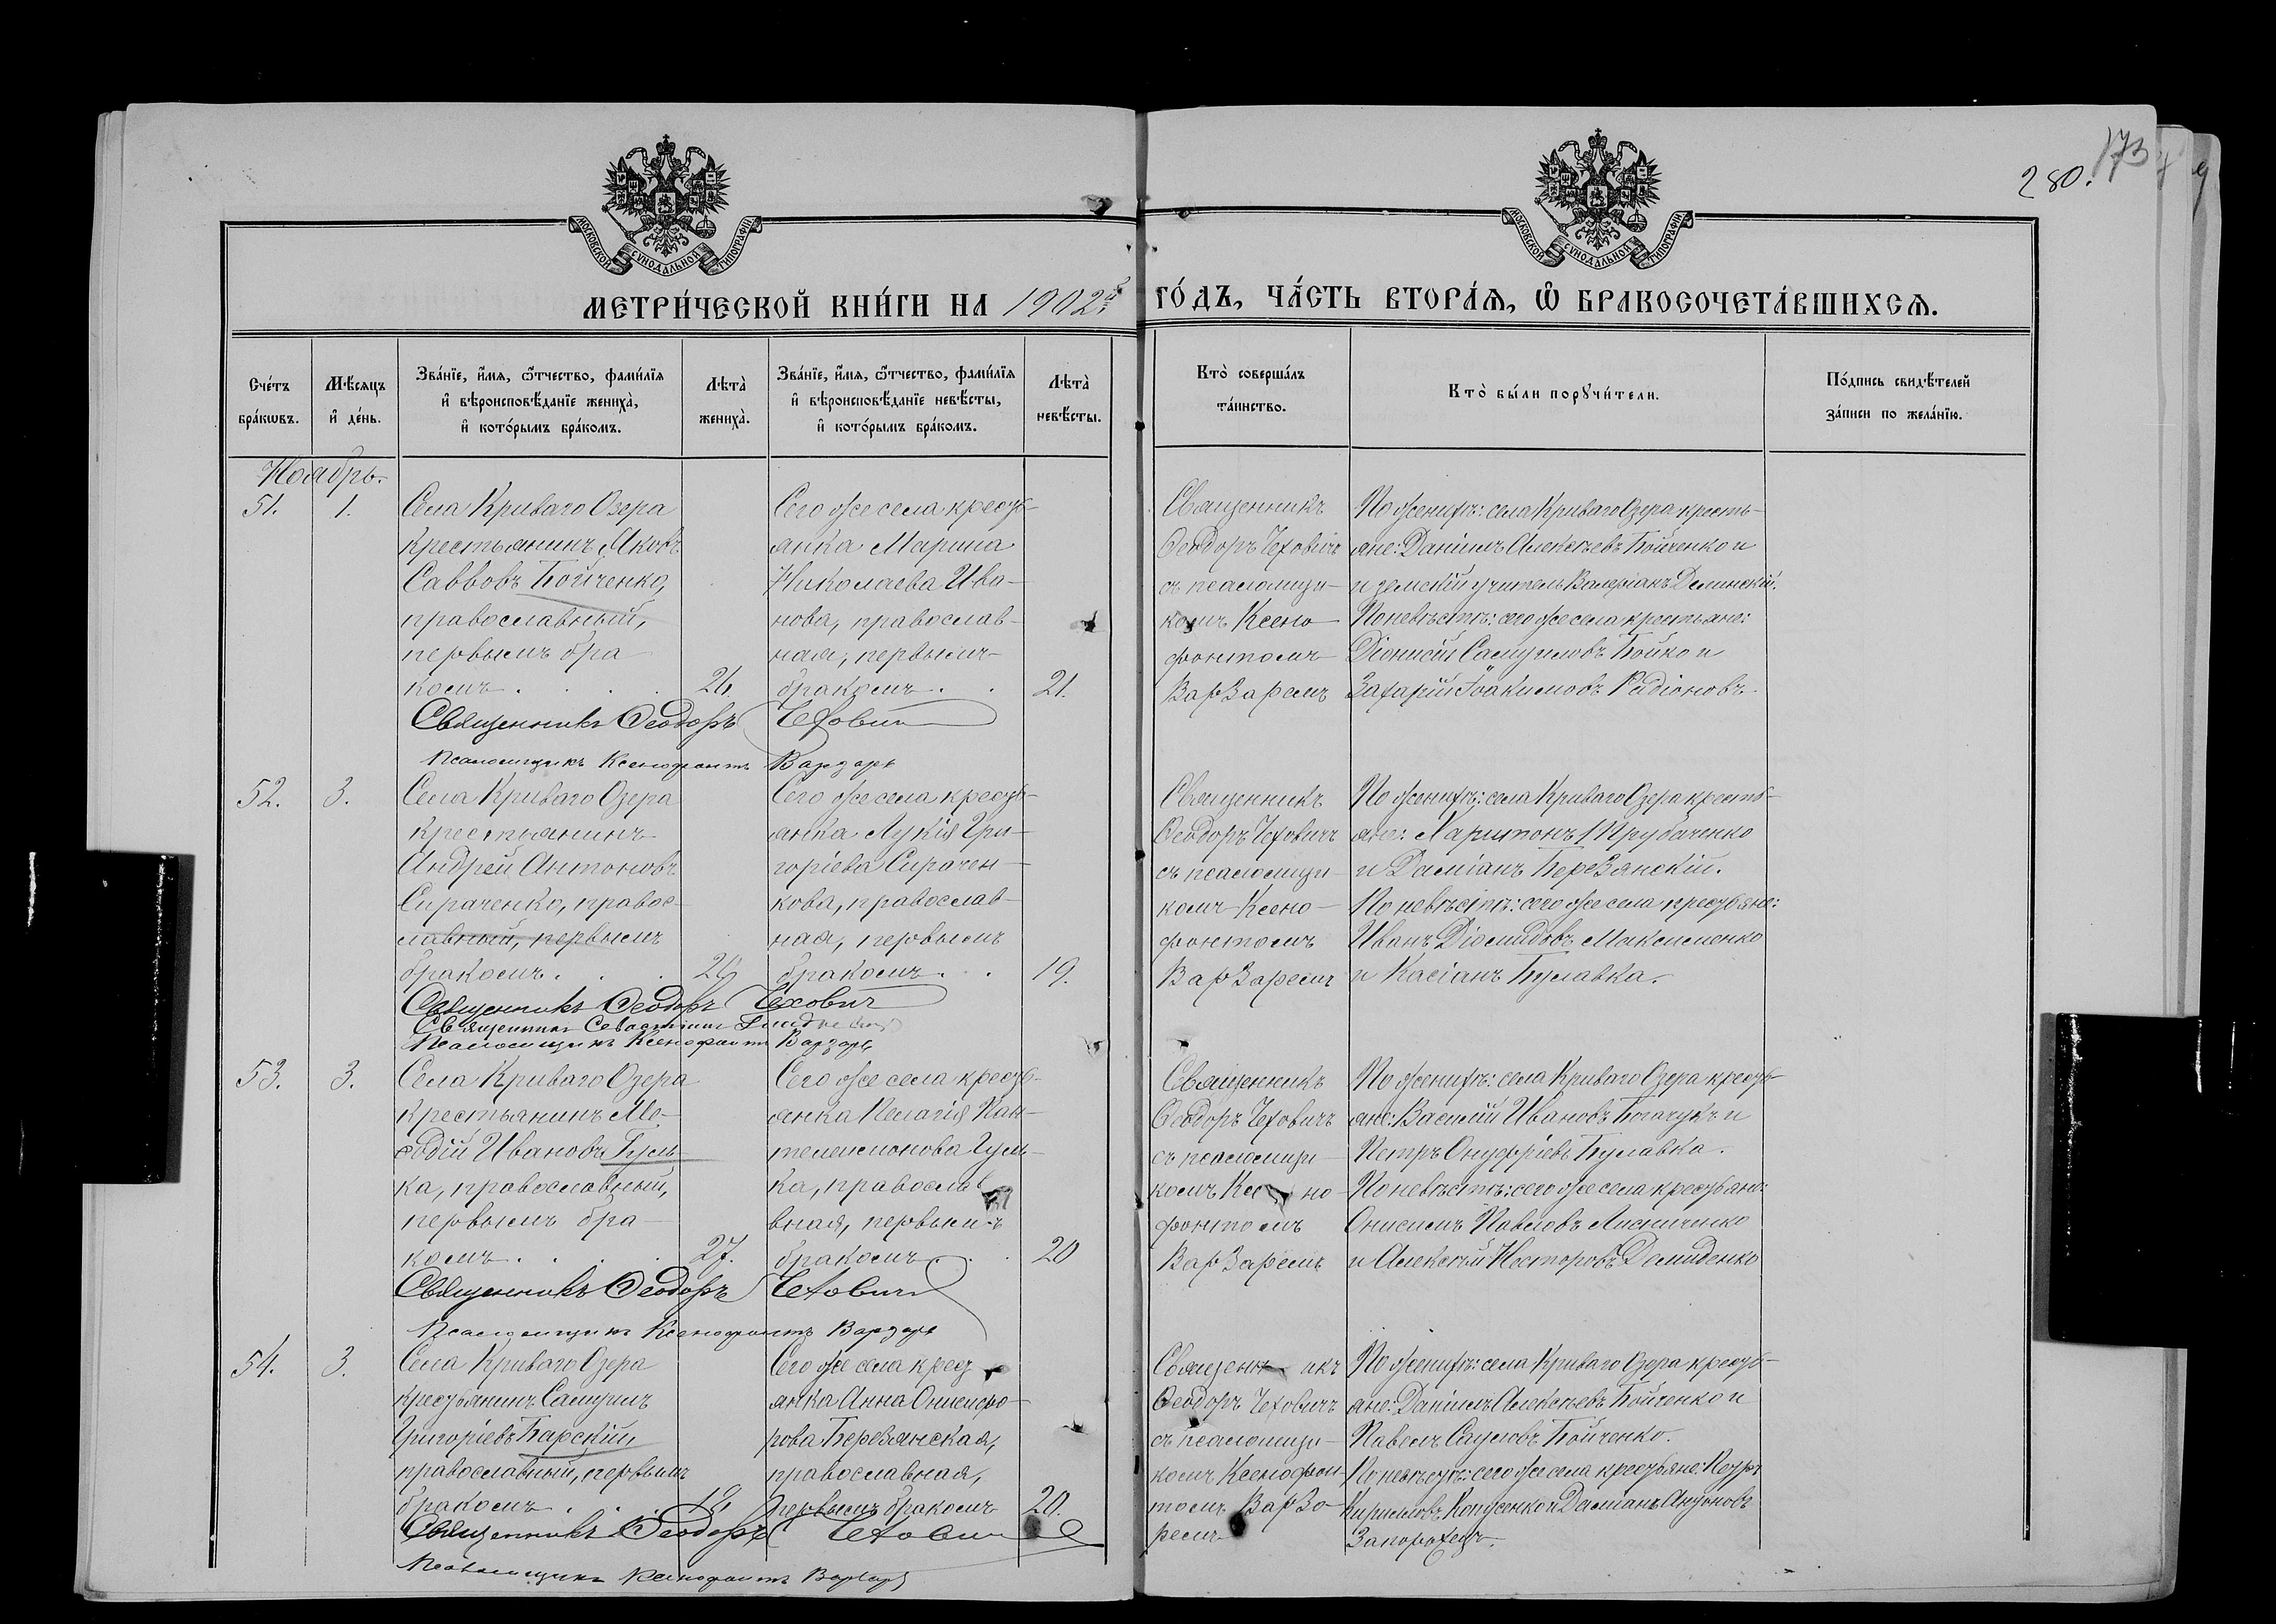 280. 173
МОСКОВСКОЙ СУНОДАЛЬНОЙ ТИПОГРАФІИ
МОСКОВСКОЙ СУНОДАЛЬНОЙ ТИПОГРАФІИ
МЕТРИ́ЧЕСКОЙ КНИ́ГИ НА 1902й ГО́ДЪ, ЧА́СТЬ ВТОРА́Ѧ, Ѽ БРАКОСОЧЕТА́ВШИХСѦ.
Сче́тъ бра́кѡвъ.
Мѣ́сѧцъ и҆ де́нь.
Зва́нїе, и҆́мѧ, ѻ҆́тчество, фами́лїѧ
и҆ вѣроисповѣ́данїе жениха̀,
и҆ кото́рымъ бра́комъ.
Лѣ́та̀ жениха̀.
Зва́нїе, и҆́мѧ, ѻ҆́тчество, фами́лїѧ
и҆ вѣроисповѣ́данїе невѣ́сты,
и҆ кото́рымъ бра́комъ.
Лѣ́та̀ невѣ́сты.
Кто̀ соверша́лъ
та́инство.
Кто̀ бы́ли порꙋчи́тели.
По́дпись свидѣ́телей
за́писи по жела́нїю.
Ноябрь.
51.
1.
Села Криваго Озера
крестьянинъ Яковъ
Саввовъ Бойченко,
православный,
первымъ бра
комъ . . . 26.
Сего же села кресть-
янка Марина
Николаева Ива-
нова, православ-
ная, первымъ
бракомъ . . 21.
Священникъ
Ѳеодоръ Чеховичъ
съ псаломщи-
комъ Ксено-
фонтомъ
Варзаремъ
По женихѣ: села Криваго Озера кресть-
яне: Даніилъ Алексѣевъ Бойченко и
и земскій учитель Валеріанъ Делинскій.
По невѣстѣ: сего же села крестьяне:
Діонисій Самуиловъ Бойко и
Захарій Іоакимовъ Радіоновъ.
Священникъ Ѳеодоръ Чехович
Псаломщикъ Ксенофонтъ Варзарь
52.
3.
Села Криваго Озера
крестьянинъ
Андрей Антоновъ
Сираченко, правос-
лавный, первымъ
бракомъ . . 26
Сего же села кресть-
янка Лукія Гри-
горіева Сирачен-
кова, православ-
ная, первымъ
бракомъ . . 19.
Священникъ
Ѳеодоръ Чеховичъ
съ псаломщи-
комъ Ксено-
фонтомъ
Варзаремъ
По женихѣ: села Криваго Озера кресть-
яне: Харитонъ Трубаченко
и Даміанъ Березянскій.
По невѣстѣ: сего же села крестьяне:
Иванъ Діомидовъ Максименко
и Касіанъ Булавка.
Священникъ Ѳеодоръ Чехович
Священникъ Севастіанъ
Псаломщикъ Ксенофонтъ Варзарь
53.
3.
Села Криваго Озера
крестьянинъ Ме-
ѳодій Ивановъ Гуль-
ка, православный,
первымъ бра-
комъ . . . 27.
Сего же села кресть-
янка Пелагія Пан-
телеимонова Гуль-
ка, правосла
вная, первымъ
бракомъ . . 20
Священникъ
Ѳеодоръ Чеховичъ
съ псаломщи-
комъ Ксено-
фонтомъ
Варзаремъ
По женихѣ: села Криваго Озера кресть-
яне: Василій Ивановъ Богачукъ и
Петръ Онуфріевъ Булавка.
По невѣстѣ: сего же села крестьяне:
Онисимъ Павловъ Лисниченко
и Алексѣй Несторовъ Демиденко
Священникъ Ѳеодоръ Чехович
Псаломщикъ Ксенофонтъ Варзарь
54.
3.
Села Криваго Озера
крестьянинъ Самуилъ
Григоріевъ Барскій,
православный, первымъ
бракомъ . . 18
Сего же села крест
янка Анна Онисифо-
рова Березянская,
православная,
первымъ бракомъ 20.
Священникъ
Ѳеодоръ Чеховичъ
съ псаломщи-
комъ Ксенофон-
томъ Варза-
ремъ
По женихѣ: села Криваго Озера кресть-
яне: Даніилъ Алексѣевъ Бойченко и
Павелъ Сауловъ Бойченко.
По невѣстѣ: сего же села крестьяне: Петръ
Кирилловъ Копусенко и Даміанъ Антоновъ
Запорожецъ.
Священникъ Ѳеодоръ Чехович
Псаломщикъ Ксенофонтъ Варзарь